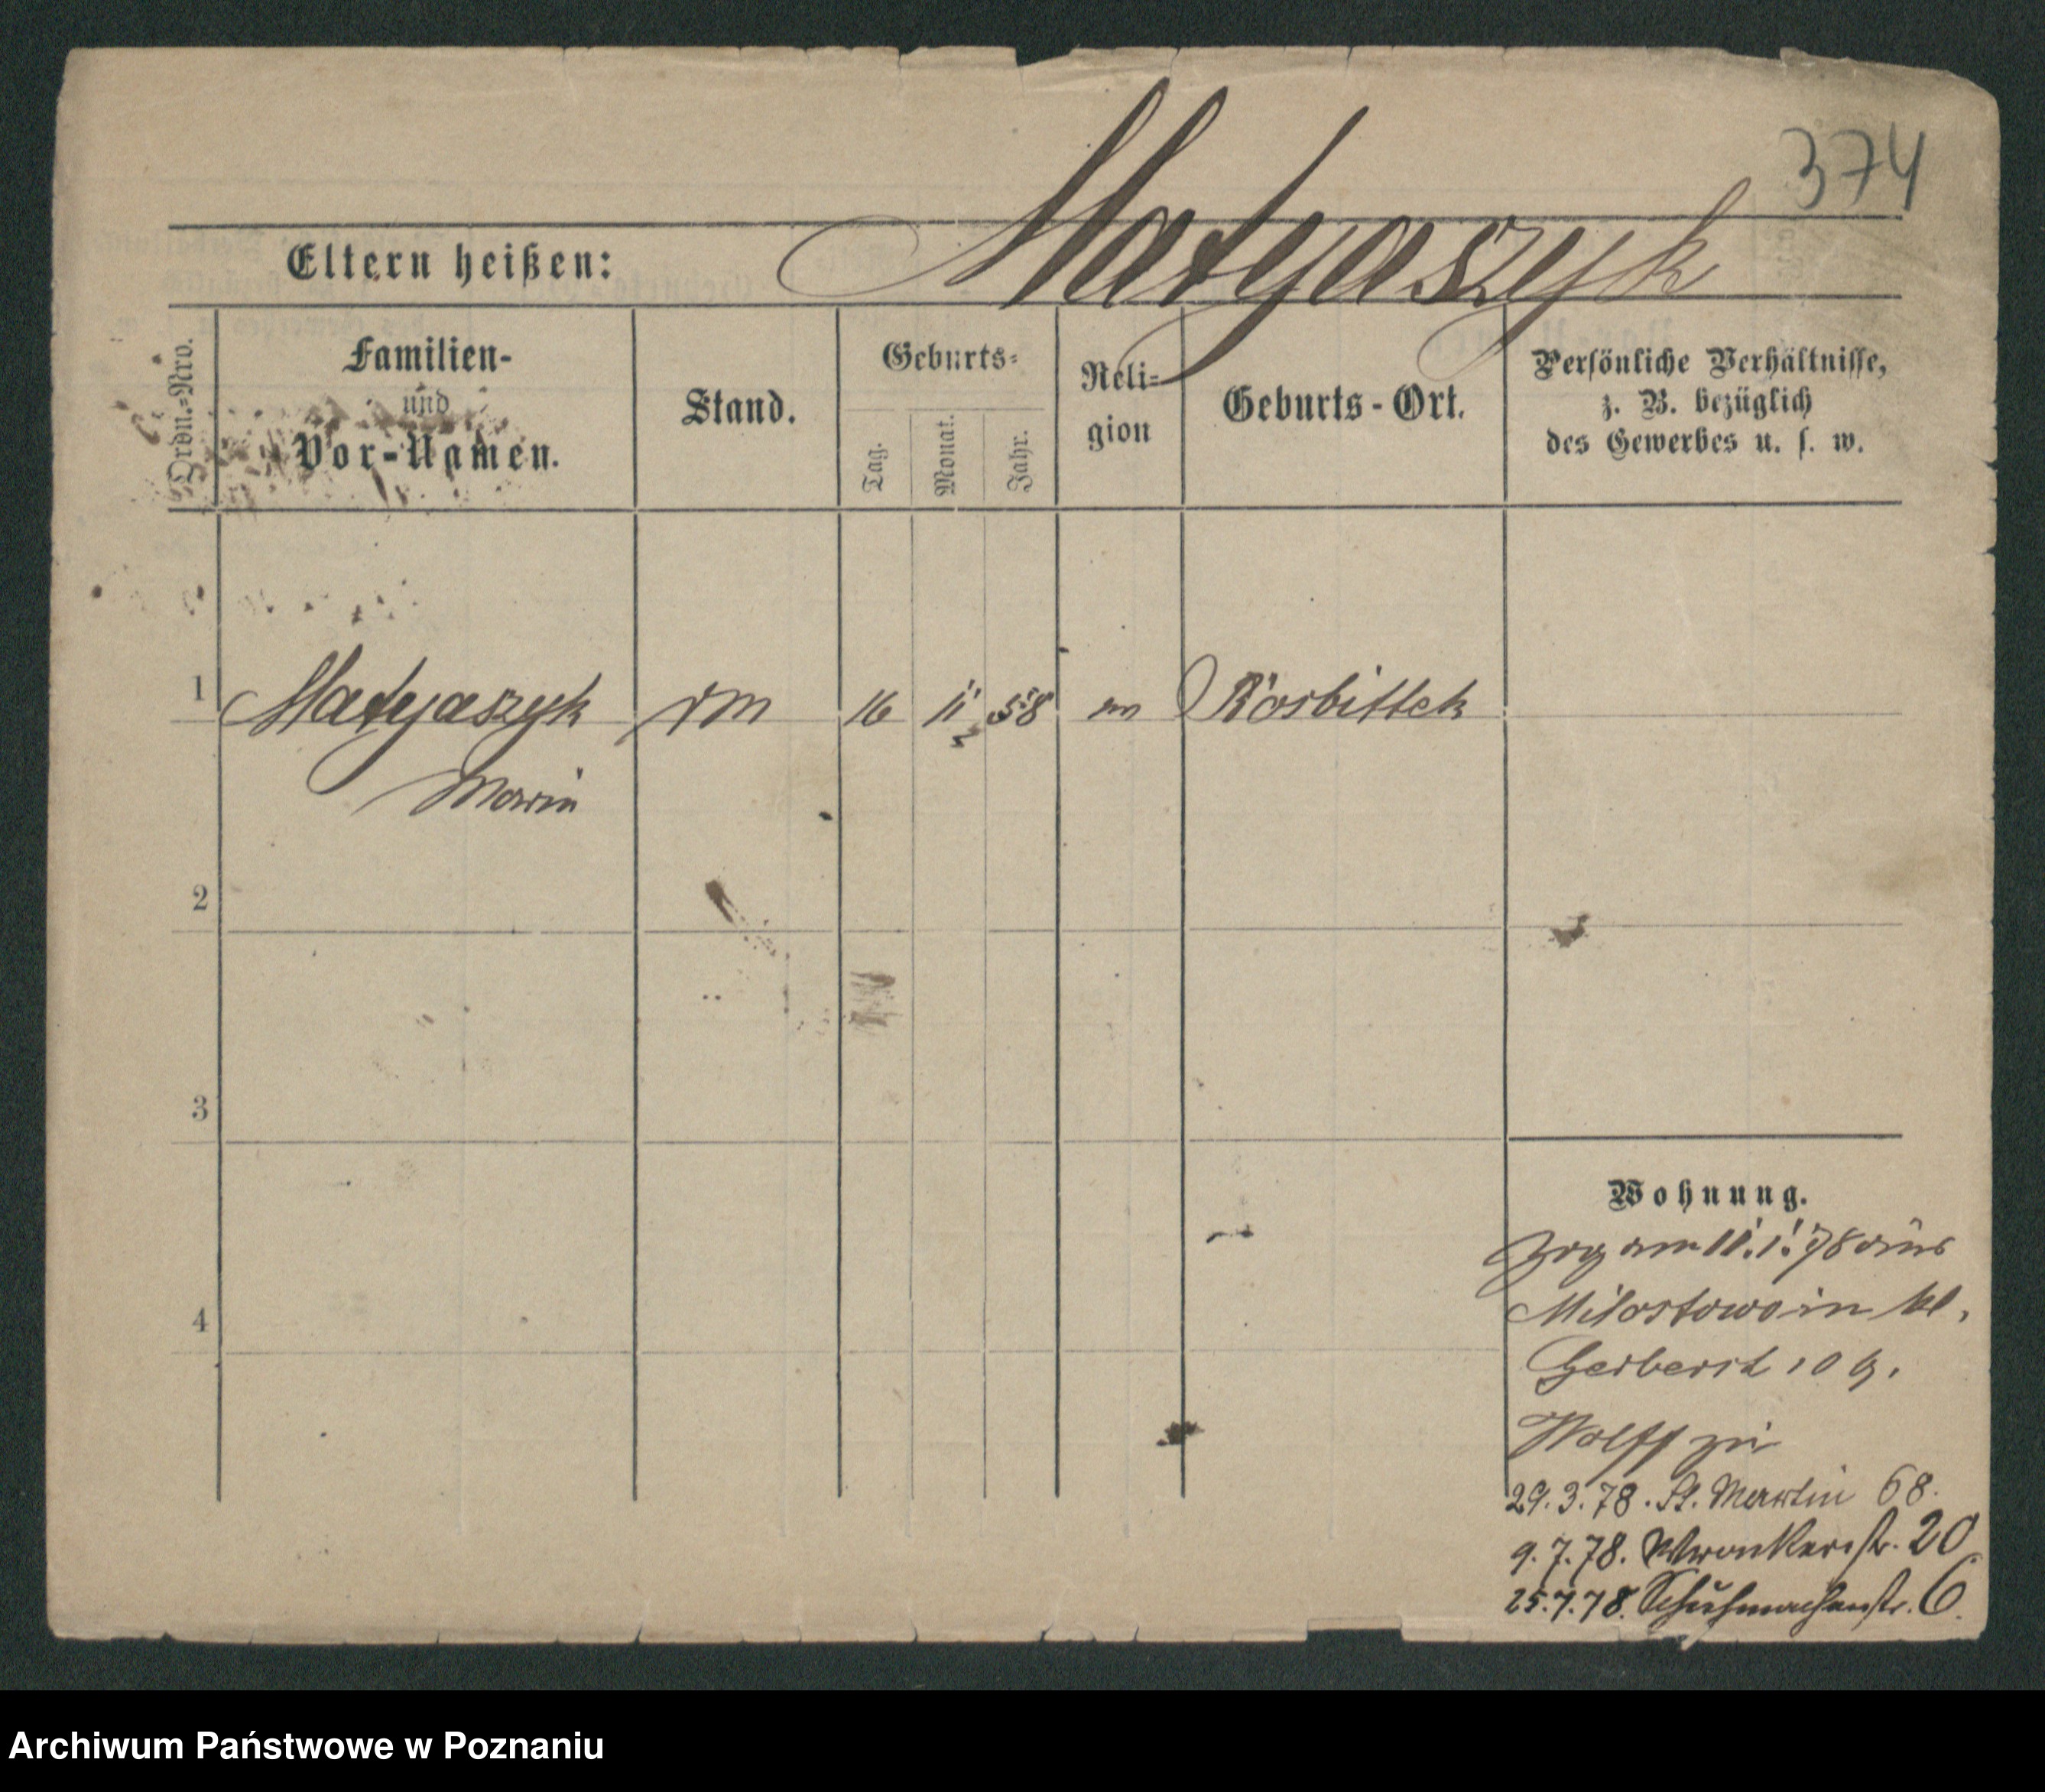 374
Eltern heißen: Matyaszyk
Ordn.-Nro.
Familien-
und
Vor-Namen.
Stand.
Geburts-
Tag.
Monat.
Jahr.
Reli-
gion
Geburts-Ort.
Persönliche Verhältnisse,
z. B. bezüglich
des Gewerbes u. s. w.
1 Matyaszyk 16 11 58 Rosbittek
Marie
2
3
4
Wohnung.
Zog am 11.1.78 aus
Milostowo in kl.
Gerberst 10 b.
Wolff zu
29.3.78. St. Martin 68.
9.7.78. Wronkerstr. 20
25.7.78. Schuhmacherstr. 6.
Archiwum Państwowe w Poznaniu